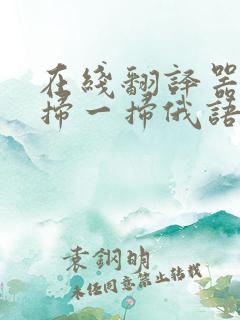 在綫翻譯器
掃一掃俄語
袁鋼明
未经同意禁止转载